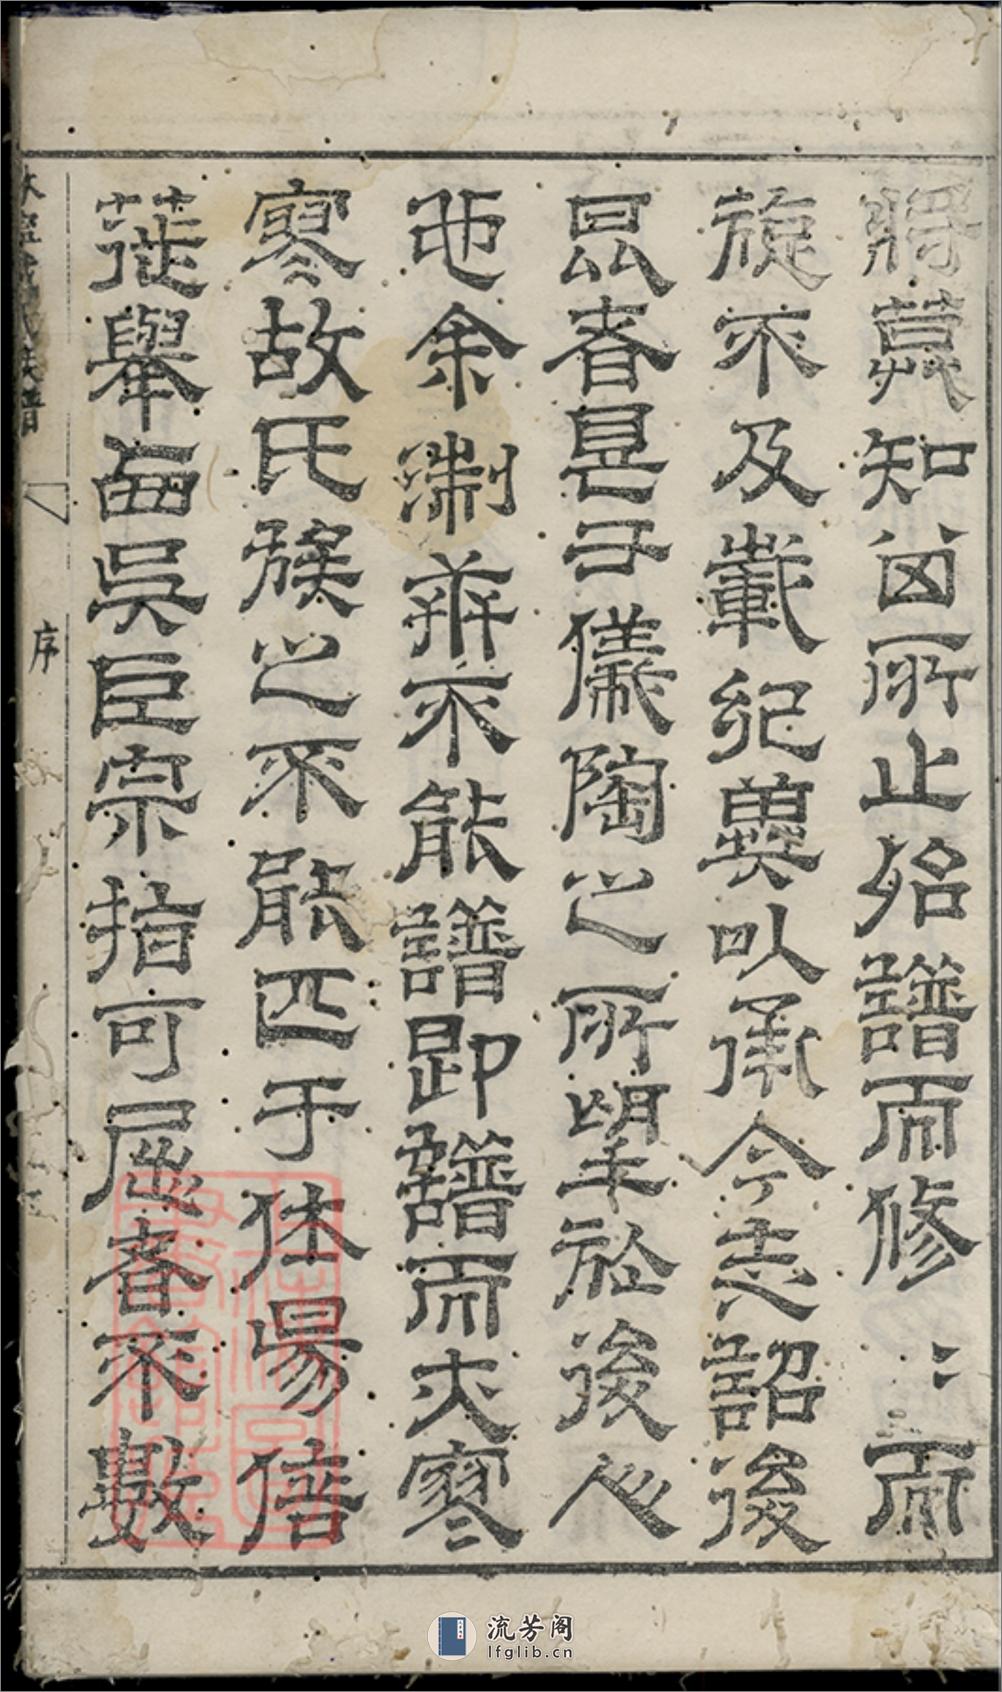 將莫知所止始譜而修〻而
旋不及載紀冀以承今志詔後
昆者是予儀陶之所望於後人
也余淛并不能譜卽譜而亦寥
寥故氏族之不能匹于休昜倍
蓰舉西吳巨宗指可屈者不數
氏族譜
序
流芳阁
lfglib.cn